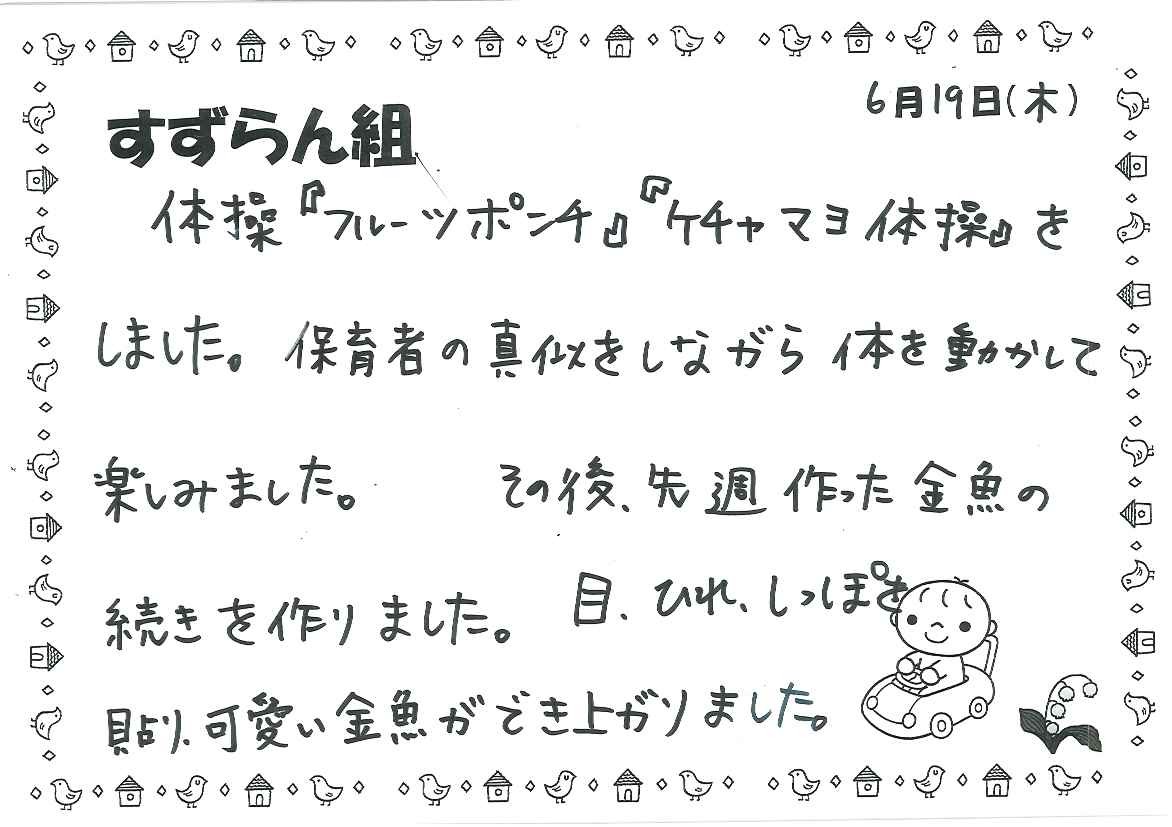 6月19日(木)
すずらん組
体操『フルーツポンチ』『ケチャマヨ体操』を
しました。保育者の真似をしながら体を動かして
楽しみました。 その後、先週作った金魚の
続きを作りました。目、ひれ、しっぽを
貼り、可愛い金魚ができ上がりました。